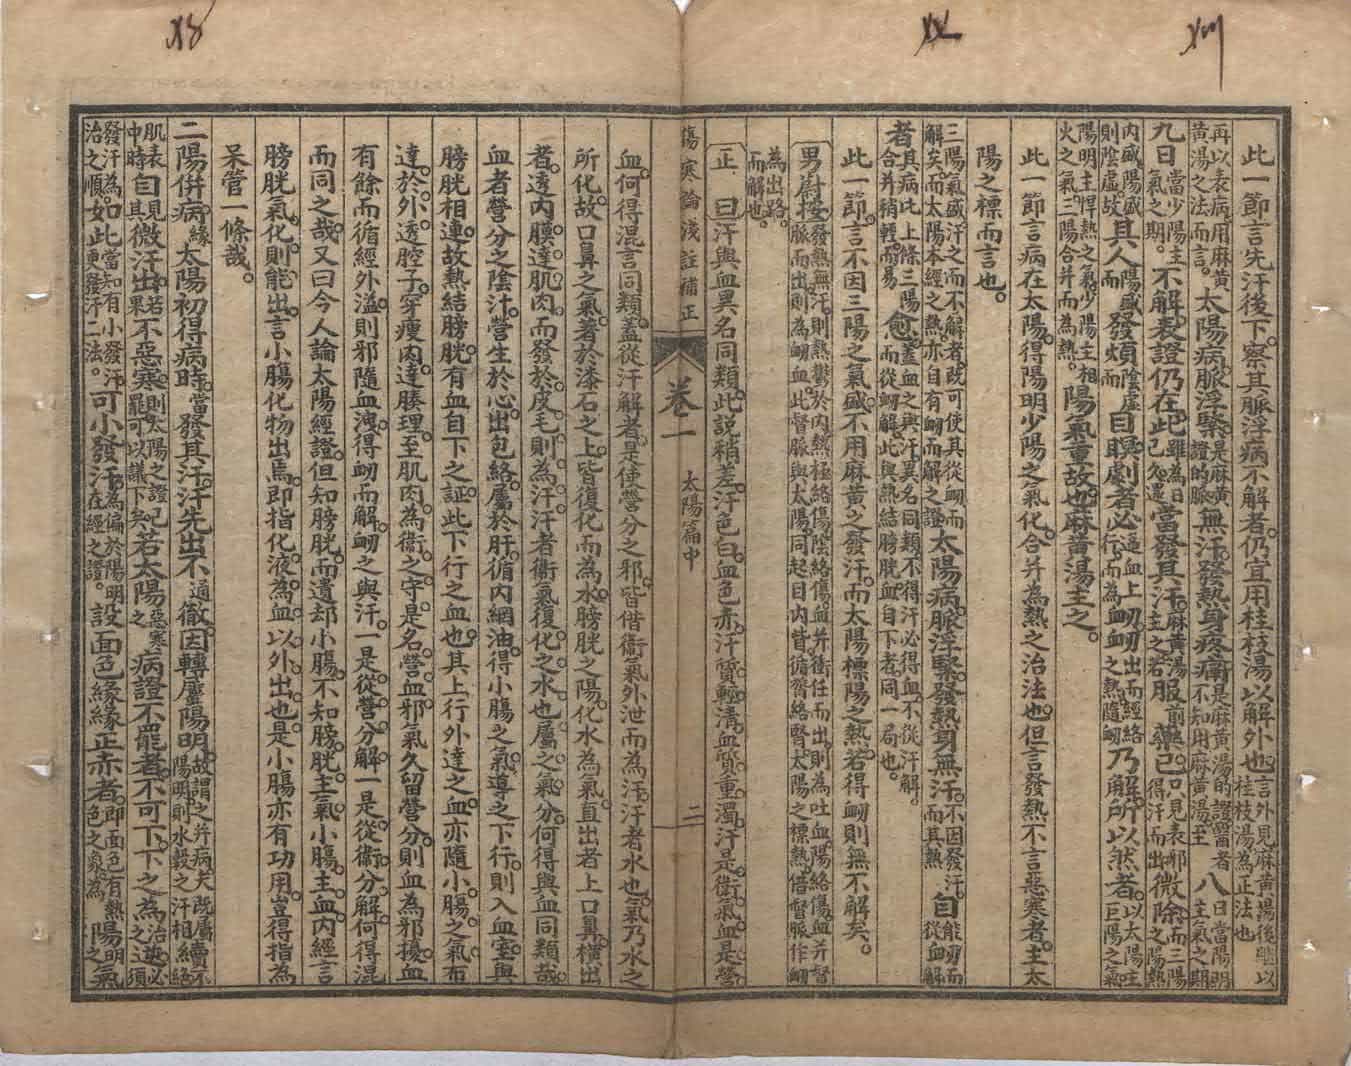 此一節言先汗後下察其脈浮病不解者仍宜用桂枝湯以解外也言外見麻黃湯後繼以桂枝湯為正法也
再以表病用麻黃湯之法而言太陽病脈浮緊是麻黃證的脈無汗發熱身疼痛是麻黃湯的證醫者不知用麻黃湯至八日當陽明主氣之期
九日當少陽主氣之期不解表證仍在此雖為日已久還當發其汗麻黃湯主之若服前藥已只見表邪得汗而出微除而三陽
內盛陽盛則陰虛故其人陽盛而發煩陰虛而目瞑劇者必逼血上行而為衄衄出而經絡之熱隨衄乃解所以然者以太陽主巨陽之氣
陽明主悍熱之氣少陽主相火之氣三陽合并而為熱陽氣重故也麻黃湯主之
此一節言病在太陽得陽明少陽之氣化合并為熱之治法也但言發熱不言惡寒者主太
陽之標而言也
三陽氣盛汗之而不解者既可使其從衄而解矣而太陽本經之熱亦自有衄而解之證太陽病脈浮緊發熱身無汗不因發汗而其熱自能衄而從血解
者其病比上條三陽合并稍輕而易愈蓋血之與汗異名同類不得汗必得血不從汗解而從衄解此與熱結膀胱血自下者同一局也
此一節言不因三陽之氣盛不用麻黃之發汗而太陽標陽之熱若得衄則無不解矣
男蔚按發熱無汗則熱鬱於內熱極絡傷陰絡傷血并衝任而出則為吐血陽絡傷血并督脈而出則為衄血此督脈與太陽同起目內眥循膂絡腎太陽之標熱借督脈作衄
為出路而解也
正曰汗與血異名同類此說稍差汗色白血色赤汗質輕清血質重濁汗是衛氣血是營
傷寒論淺註補正 卷一 太陽篇中 二
血何得混言同類蓋從汗解者是使營分之邪皆偕衛氣外泄而為汗汗者水也氣乃水之
所化故口鼻之氣著於漆石之上皆復化而為水膀胱之陽化水為氣直出者上口鼻橫出
者透內膜達肌肉而發於皮毛則為汗汗者衛氣復化之水也屬之氣分何得與血同類哉
血者營分之陰汁營生於心出包絡屬於肝循內網油得小腸之氣導之下行則入血室與
膀胱相連故熱結膀胱有血自下之証此下行之血也其上行外達之血亦隨小腸之氣布
達於外透腔子穿瘦肉達腠理至肌肉為衛之守是名營血邪氣久留營分則血為邪擾血
有餘而循經外溢則邪隨血洩得衄而解衄之與汗一是從營分解一是從衛分解何得混
而同之哉又曰今人論太陽經證但知膀胱而遺卻小腸不知膀胱主氣小腸主血內經言
膀胱氣化則能出言小腸化物出焉即指化液為血以外出也是小腸亦有功用豈得指為
呆管一條哉
二陽併病緣太陽初得病時當發其汗汗先出不通徹因轉屬陽明故謂之并病夫既屬陽明則水穀之汗相續不絕
肌表中時自見微汗出若果不惡寒則太陽之證已罷可以議下矣若太陽惡寒之病證不罷者不可下下之為治逆必須
發汗為治之順如此當知有小發汗更發汗二法可小發汗為偏於陽明在經之證設面色緣緣正赤者即面色有熱色之象為陽明氣